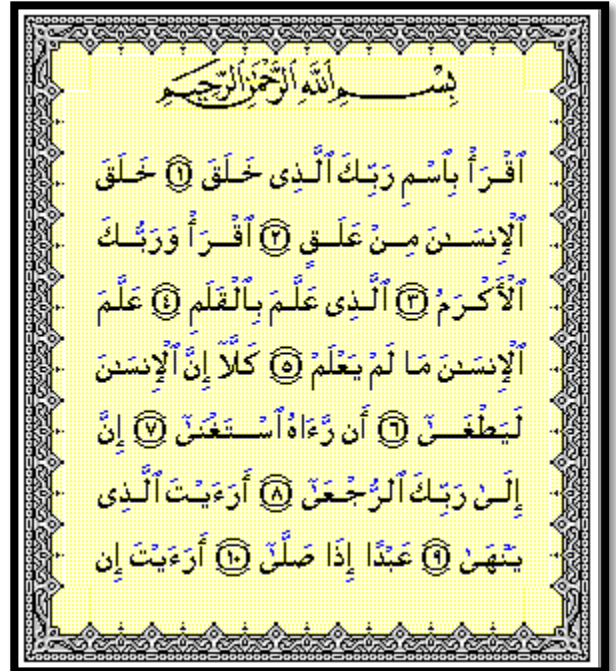 بِسْمِ اللَّهِ الرَّحْمَٰنِ الرَّحِيمِ
ٱقْرَأْ بِٱسْمِ رَبِّكَ ٱلَّذِى خَلَقَ ١ خَلَقَ
ٱلْإِنسَـٰنَ مِنْ عَلَقٍ ٢ ٱقْرَأْ وَرَبُّكَ
ٱلْأَكْرَمُ ٣ ٱلَّذِى عَلَّمَ بِٱلْقَلَمِ ٤ عَلَّمَ
ٱلْإِنسَـٰنَ مَا لَمْ يَعْلَمْ ٥ كَلَّآ إِنَّ ٱلْإِنسَـٰنَ
لَيَطْغَىٰٓ ٦ أَن رَّءَاهُ ٱسْتَغْنَىٰٓ ٧ إِنَّ
إِلَىٰ رَبِّكَ ٱلرُّجْعَىٰٓ ٨ أَرَءَيْتَ ٱلَّذِى
يَنْهَىٰ ٩ عَبْدًا إِذَا صَلَّىٰٓ ١٠ أَرَءَيْتَ إِن